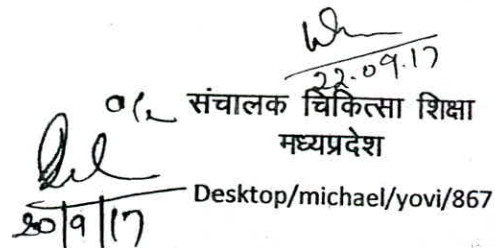 22.09.17
संचालक चिकित्सा शिक्षा
मध्यप्रदेश
Desktop/michael/yovi/867
20/9/17